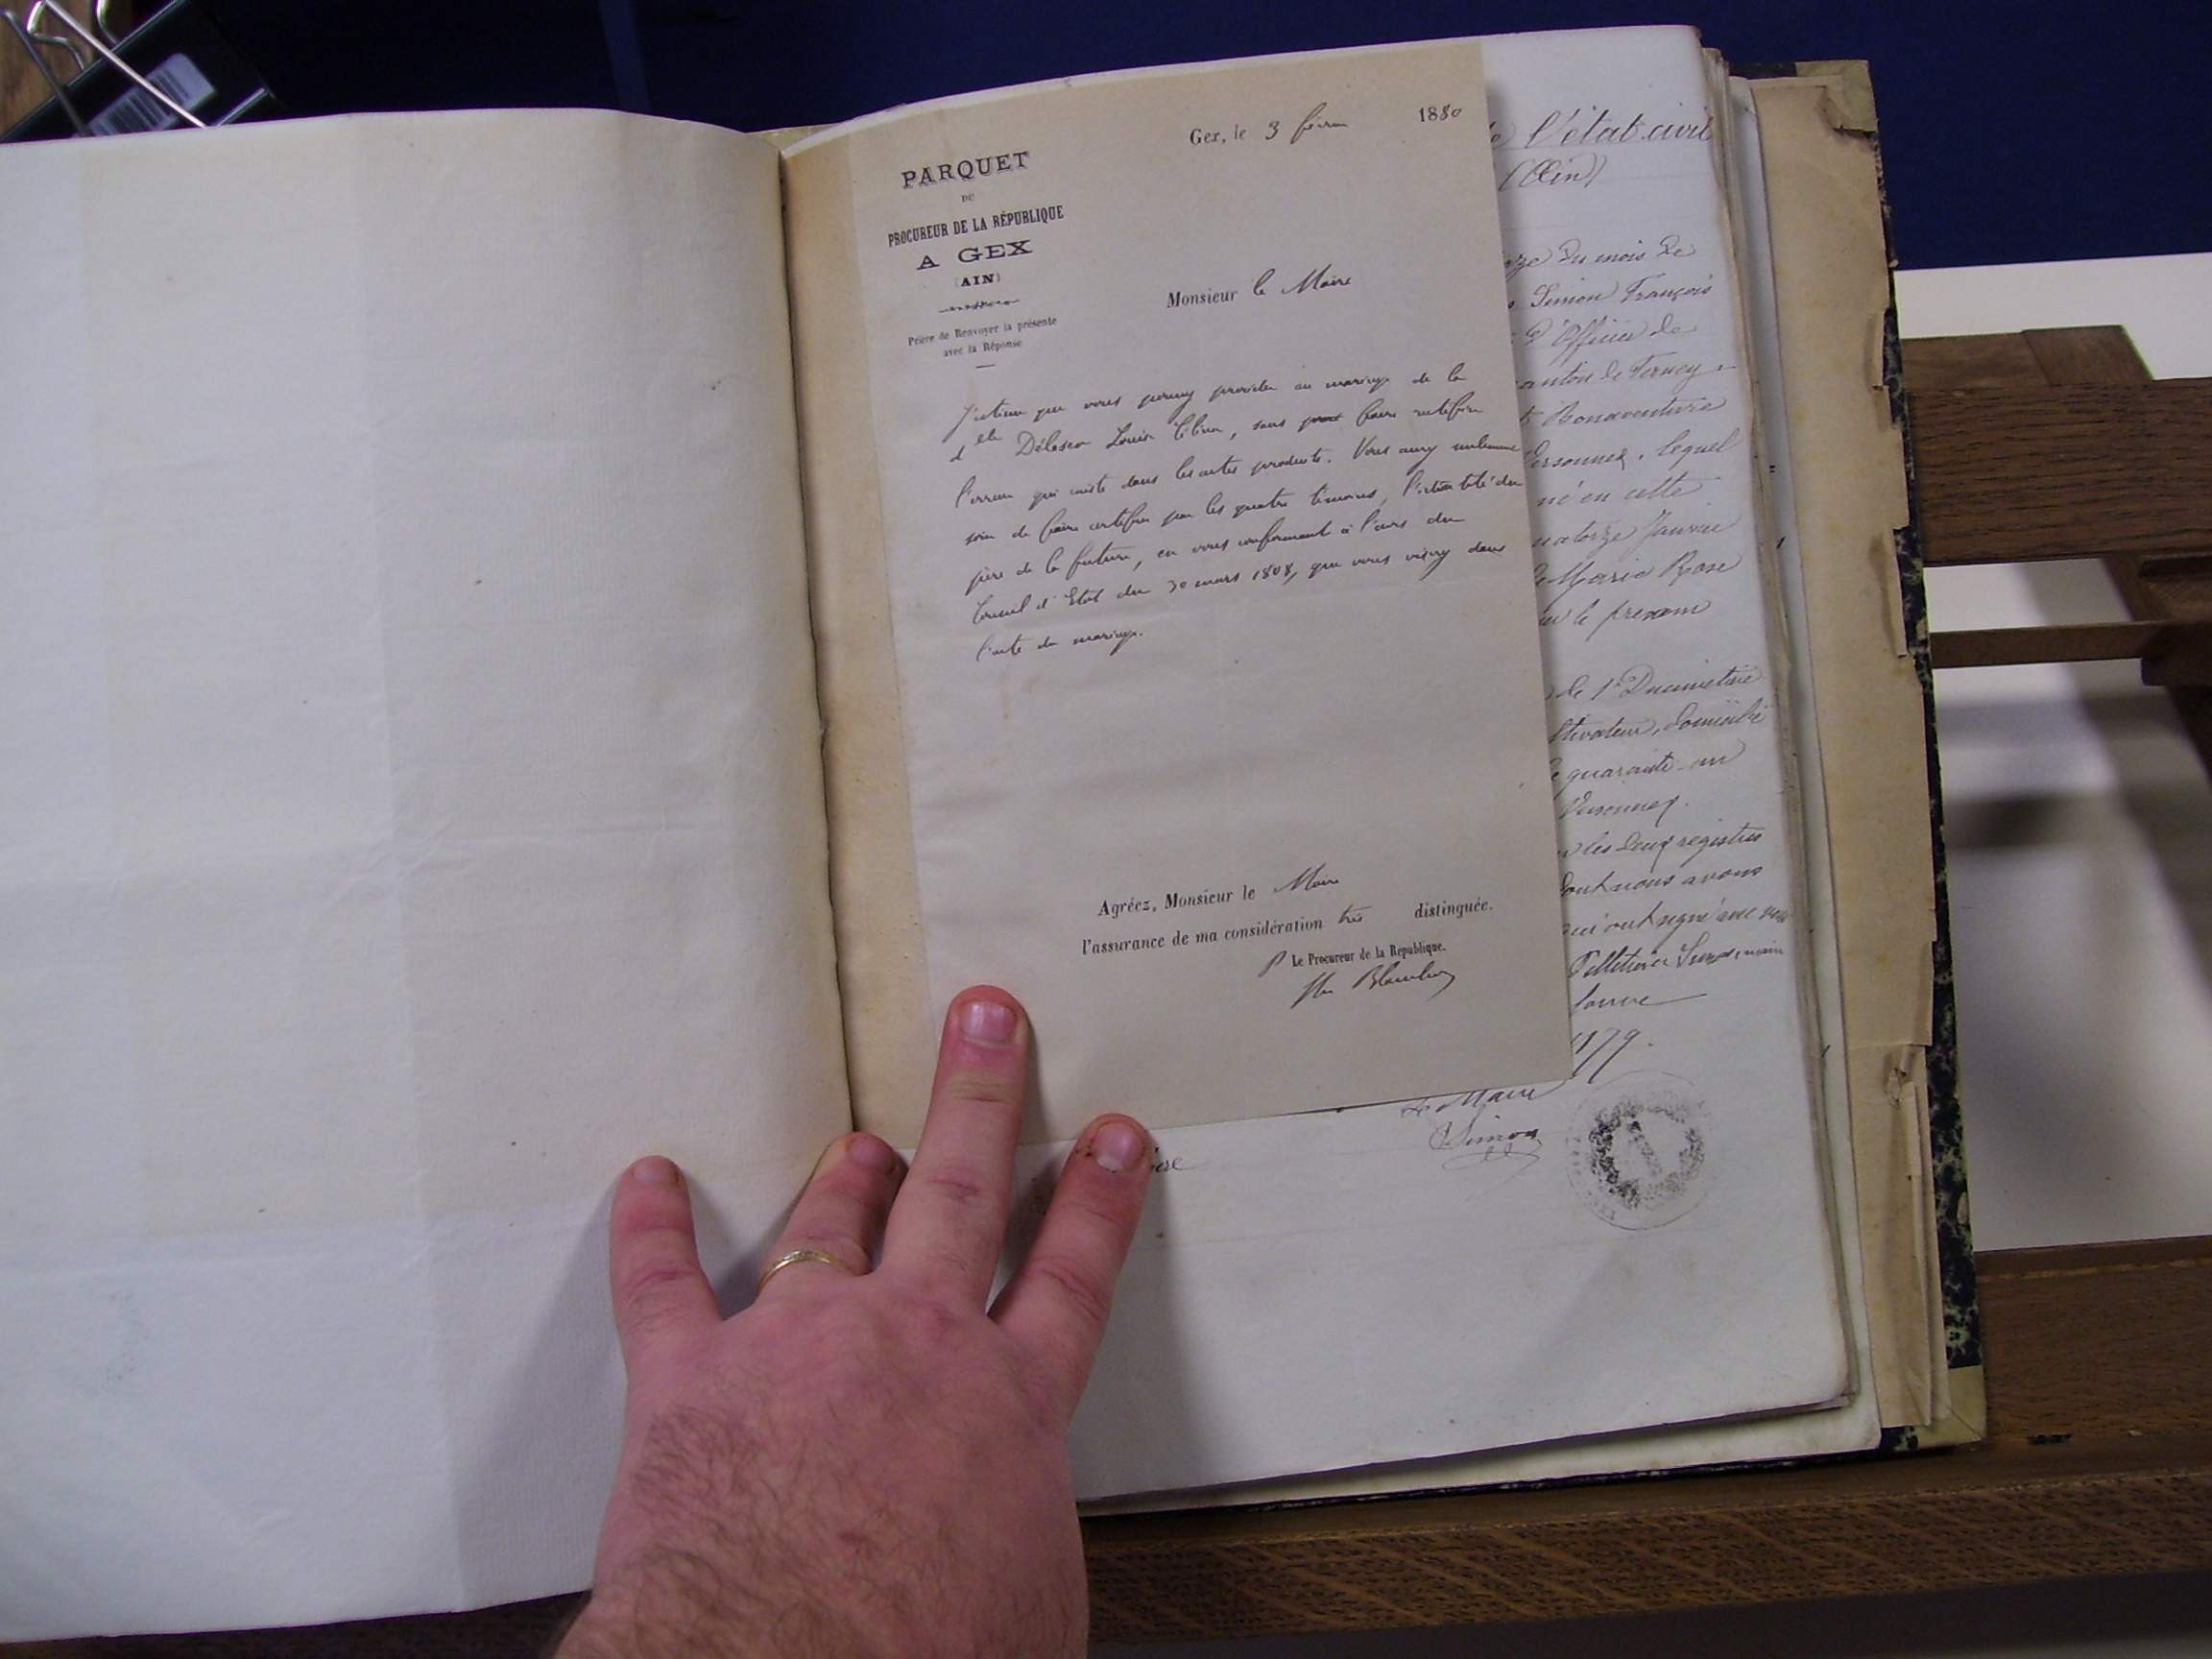 Gex, le 3 février 1880
PARQUET
DU
PROCUREUR DE LA RÉPUBLIQUE
A GEX
(AIN)
Prière de Renvoyer la présente
avec la Réponse
Monsieur le Maire
J'estime que vous pouvez procéder au mariage de la
dlle Délesca Louise, sans faire rectifier
l'erreur qui existe dans les actes produits. Vous aurez seulement
soin de faire certifier par les quatre témoins, l'identité du
père de la future, en vous conformant à l'avis du
Conseil d'Etat du 30 mars 1808, que vous viserez dans
l'acte de mariage.
Agréez, Monsieur le Maire
l'assurance de ma considération très distinguée.
P Le Procureur de la République.
de l'état civil
(Ain)
du mois de
Simon François
d'Officier de
canton de Ferney
Bonaventure
Versonnex, lequel
né en cette
quatorze Janvier
de Marie Rose
le prenom
de 1er Du
cultivateur, domicilié
quarante-un
Versonnex.
les deux registres
dont nous avons
qui ont signé avec nous
Pelletier
1879.
Le Maire
Simon